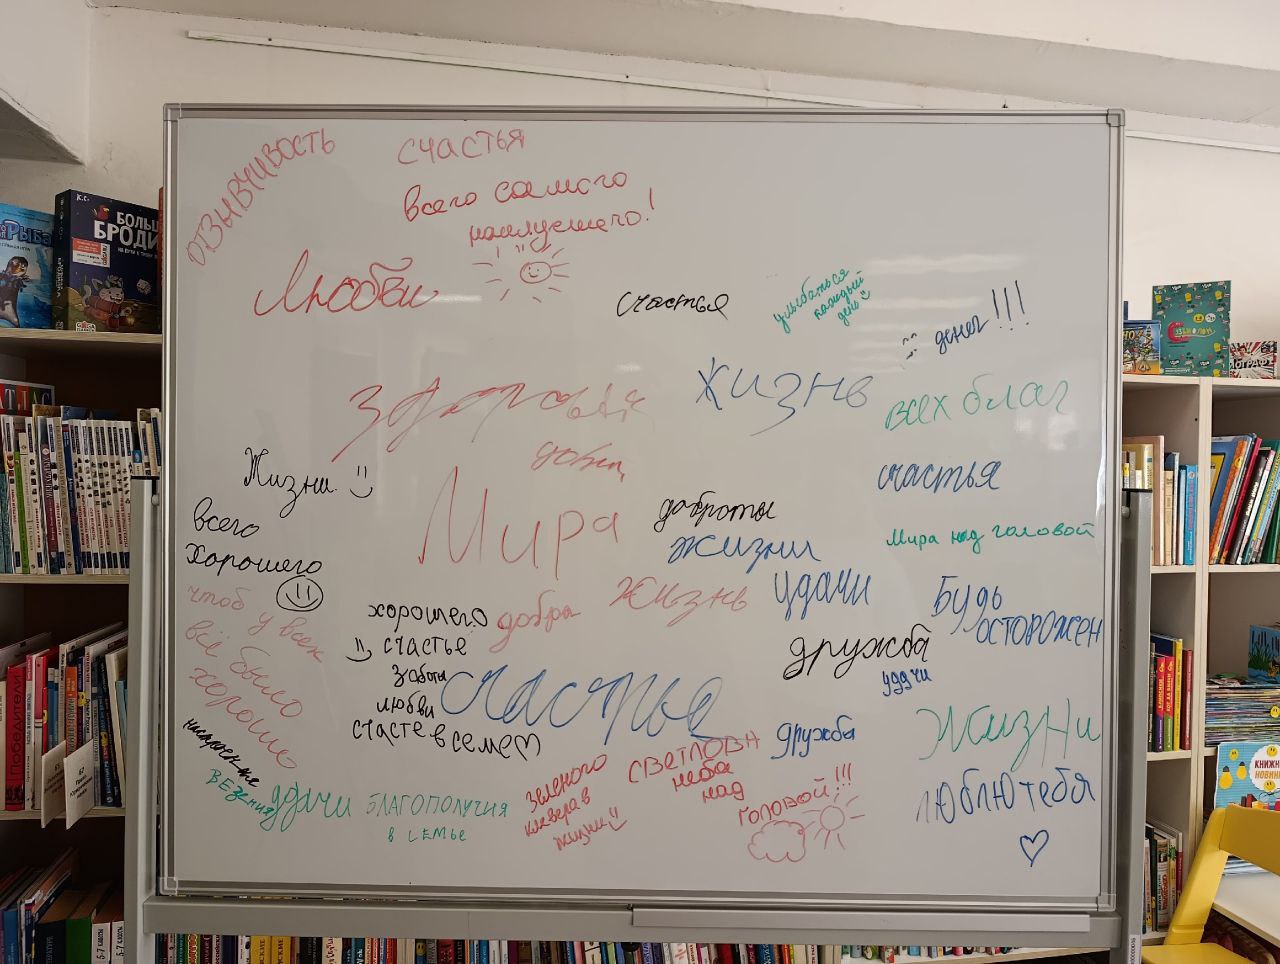 ОТЗЫВЧИВОСТЬ
СЧАСТЬЯ
всего самого
наилучшего!
Любви
счастья
улыбаться
каждый
день
денег!!!
Здоровья
жизнь
всех благ
добра
Жизни
счастья
Мира
доброты
всего
хорошего
жизни
Мира над головой
чтоб у всех
всё было
хорошо
хорошего
добра
жизнь
удачи
Будь
осторожен
счастье
дружба
заботы
удачи
любви
счастье
счасте в семе
дружба
Жизни
настроение
ВЕЗЕНИЯ
удачи
БЛАГОПОЛУЧИЯ
в СЕМЬЕ
зеленого
клевера в
жизни
СВЕТЛОВА
неба
над
ГОЛОВОЙ!!!
ЛЮБЛЮ ТЕБЯ
Рыба
БОЛЬШ
БРОДИ
АТЛАС
КНИЖН
НОВИН
5-7 класс
5-7 класс